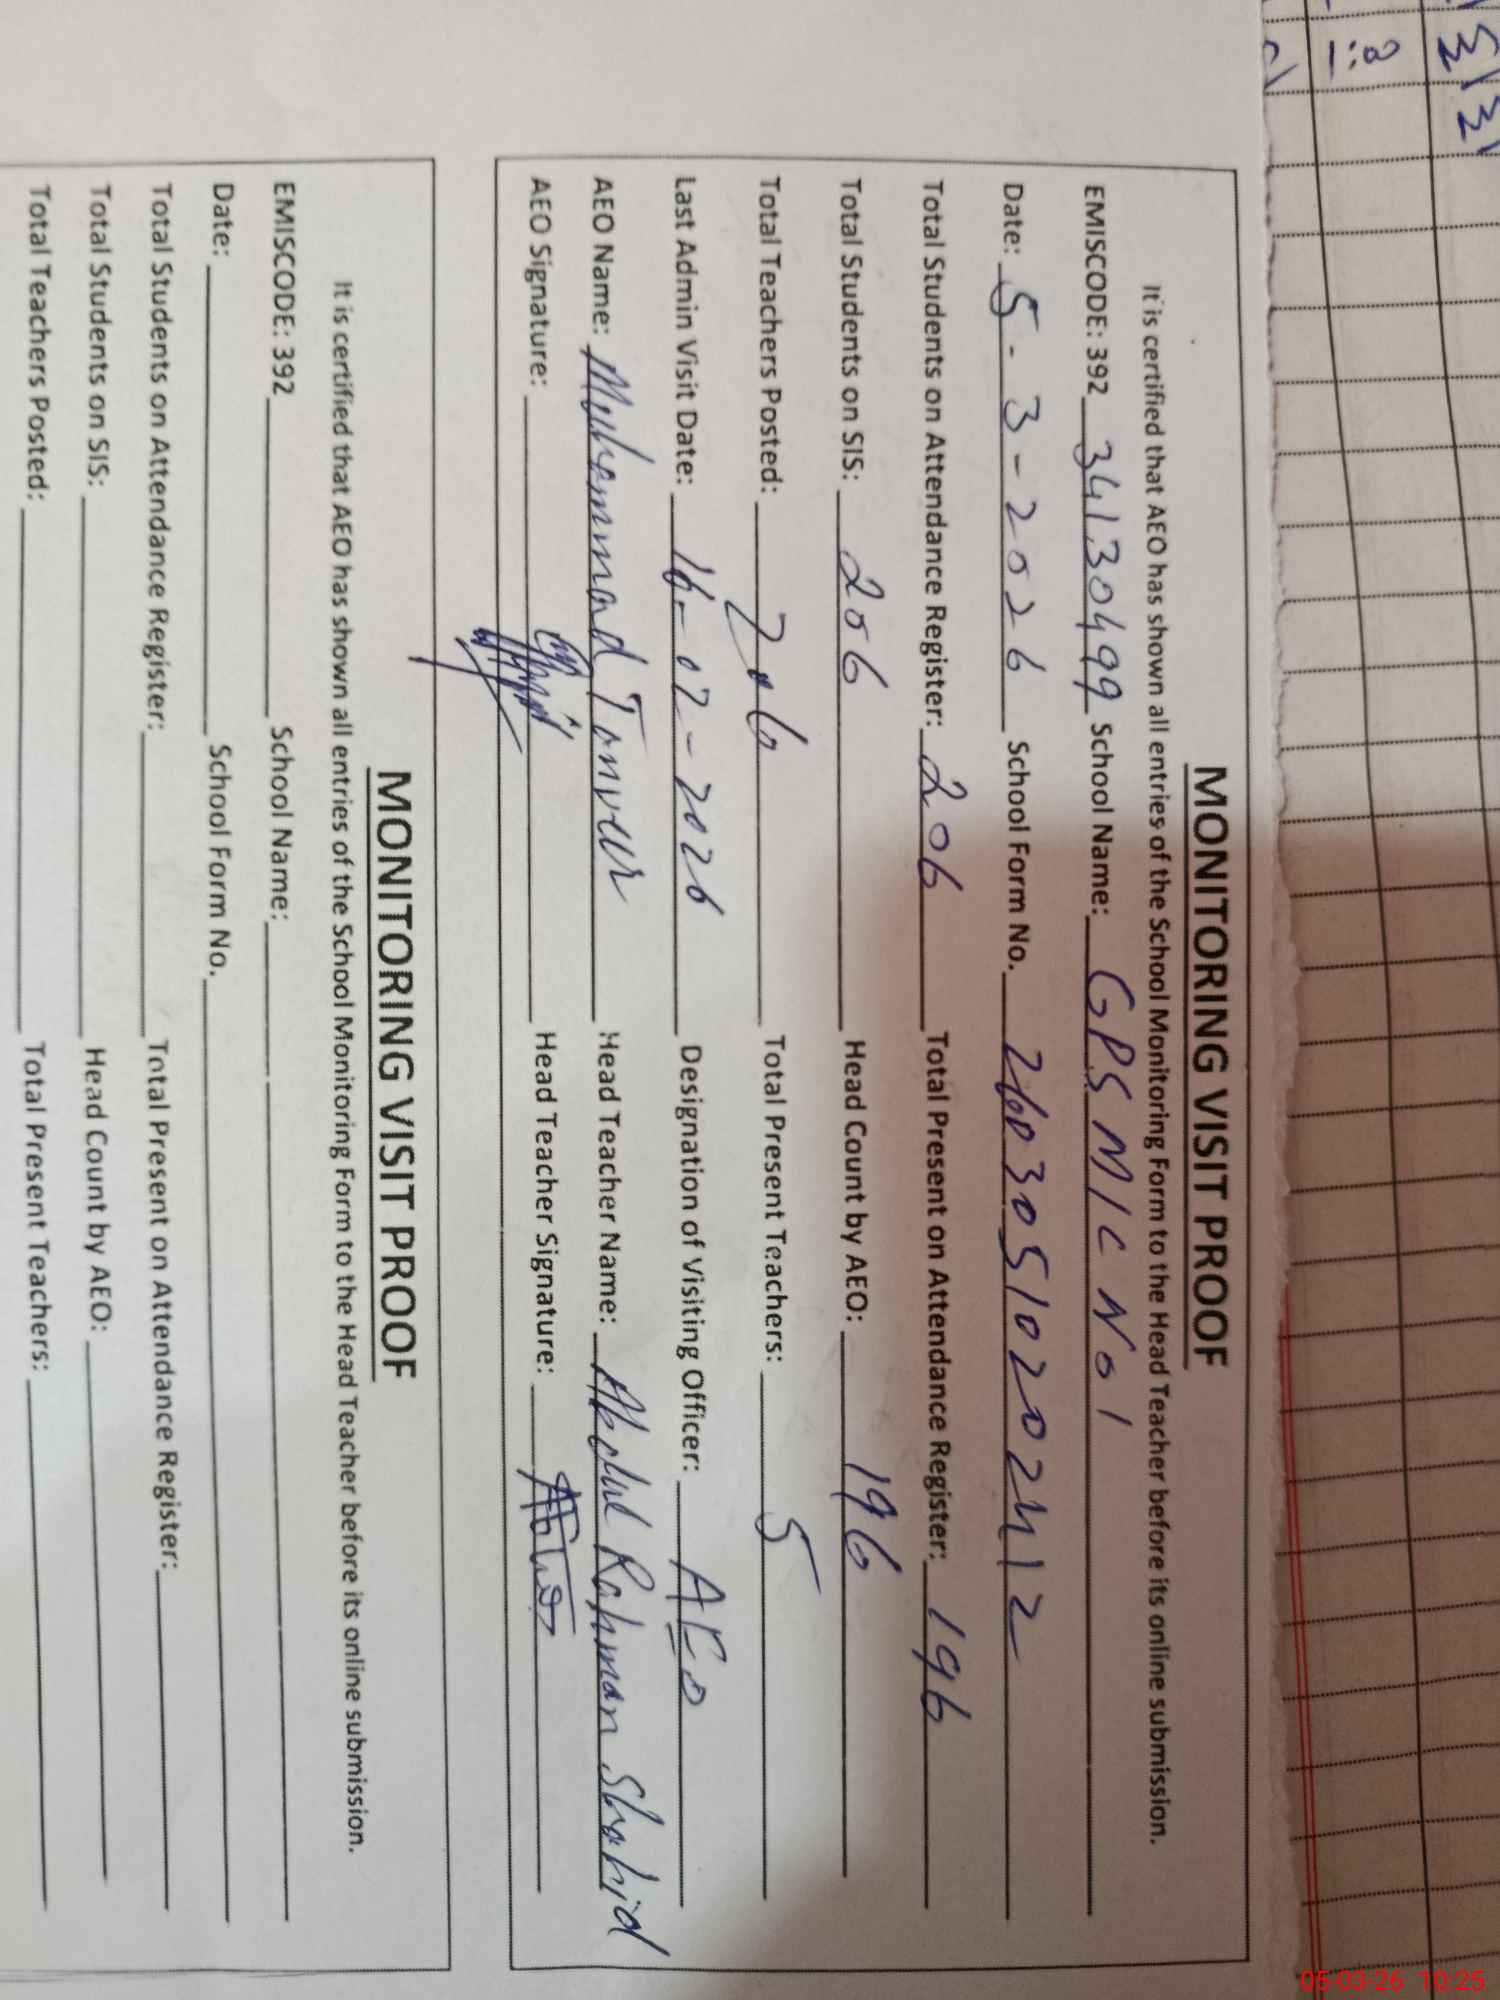 MONITORING VISIT PROOF
It is certified that AEO has shown all entries of the School Monitoring Form to the Head Teacher before its online submission.
EMISCODE: 392 34130499 School Name: GPS MIC No 1
Date: 5-3-2026 School Form No. 2603051020 2412
Total Students on Attendance Register: 206 Total Present on Attendance Register: 196
Total Students on SIS: 206 Head Count by AEO: 196
Total Teachers Posted: 706 Total Present Teachers: 5
Last Admin Visit Date: 16-02-2026 Designation of Visiting Officer: AEO
AEO Name: Muhammad Tanveer Head Teacher Name: Abdul Rahman Shahid
AEO Signature: Head Teacher Signature:
MONITORING VISIT PROOF
It is certified that AEO has shown all entries of the School Monitoring Form to the Head Teacher before its online submission.
EMISCODE: 392 School Name:
Date: School Form No.
Total Students on Attendance Register: Total Present on Attendance Register:
Total Students on SIS: Head Count by AEO:
Total Teachers Posted: Total Present Teachers:
05-03-26 10:25